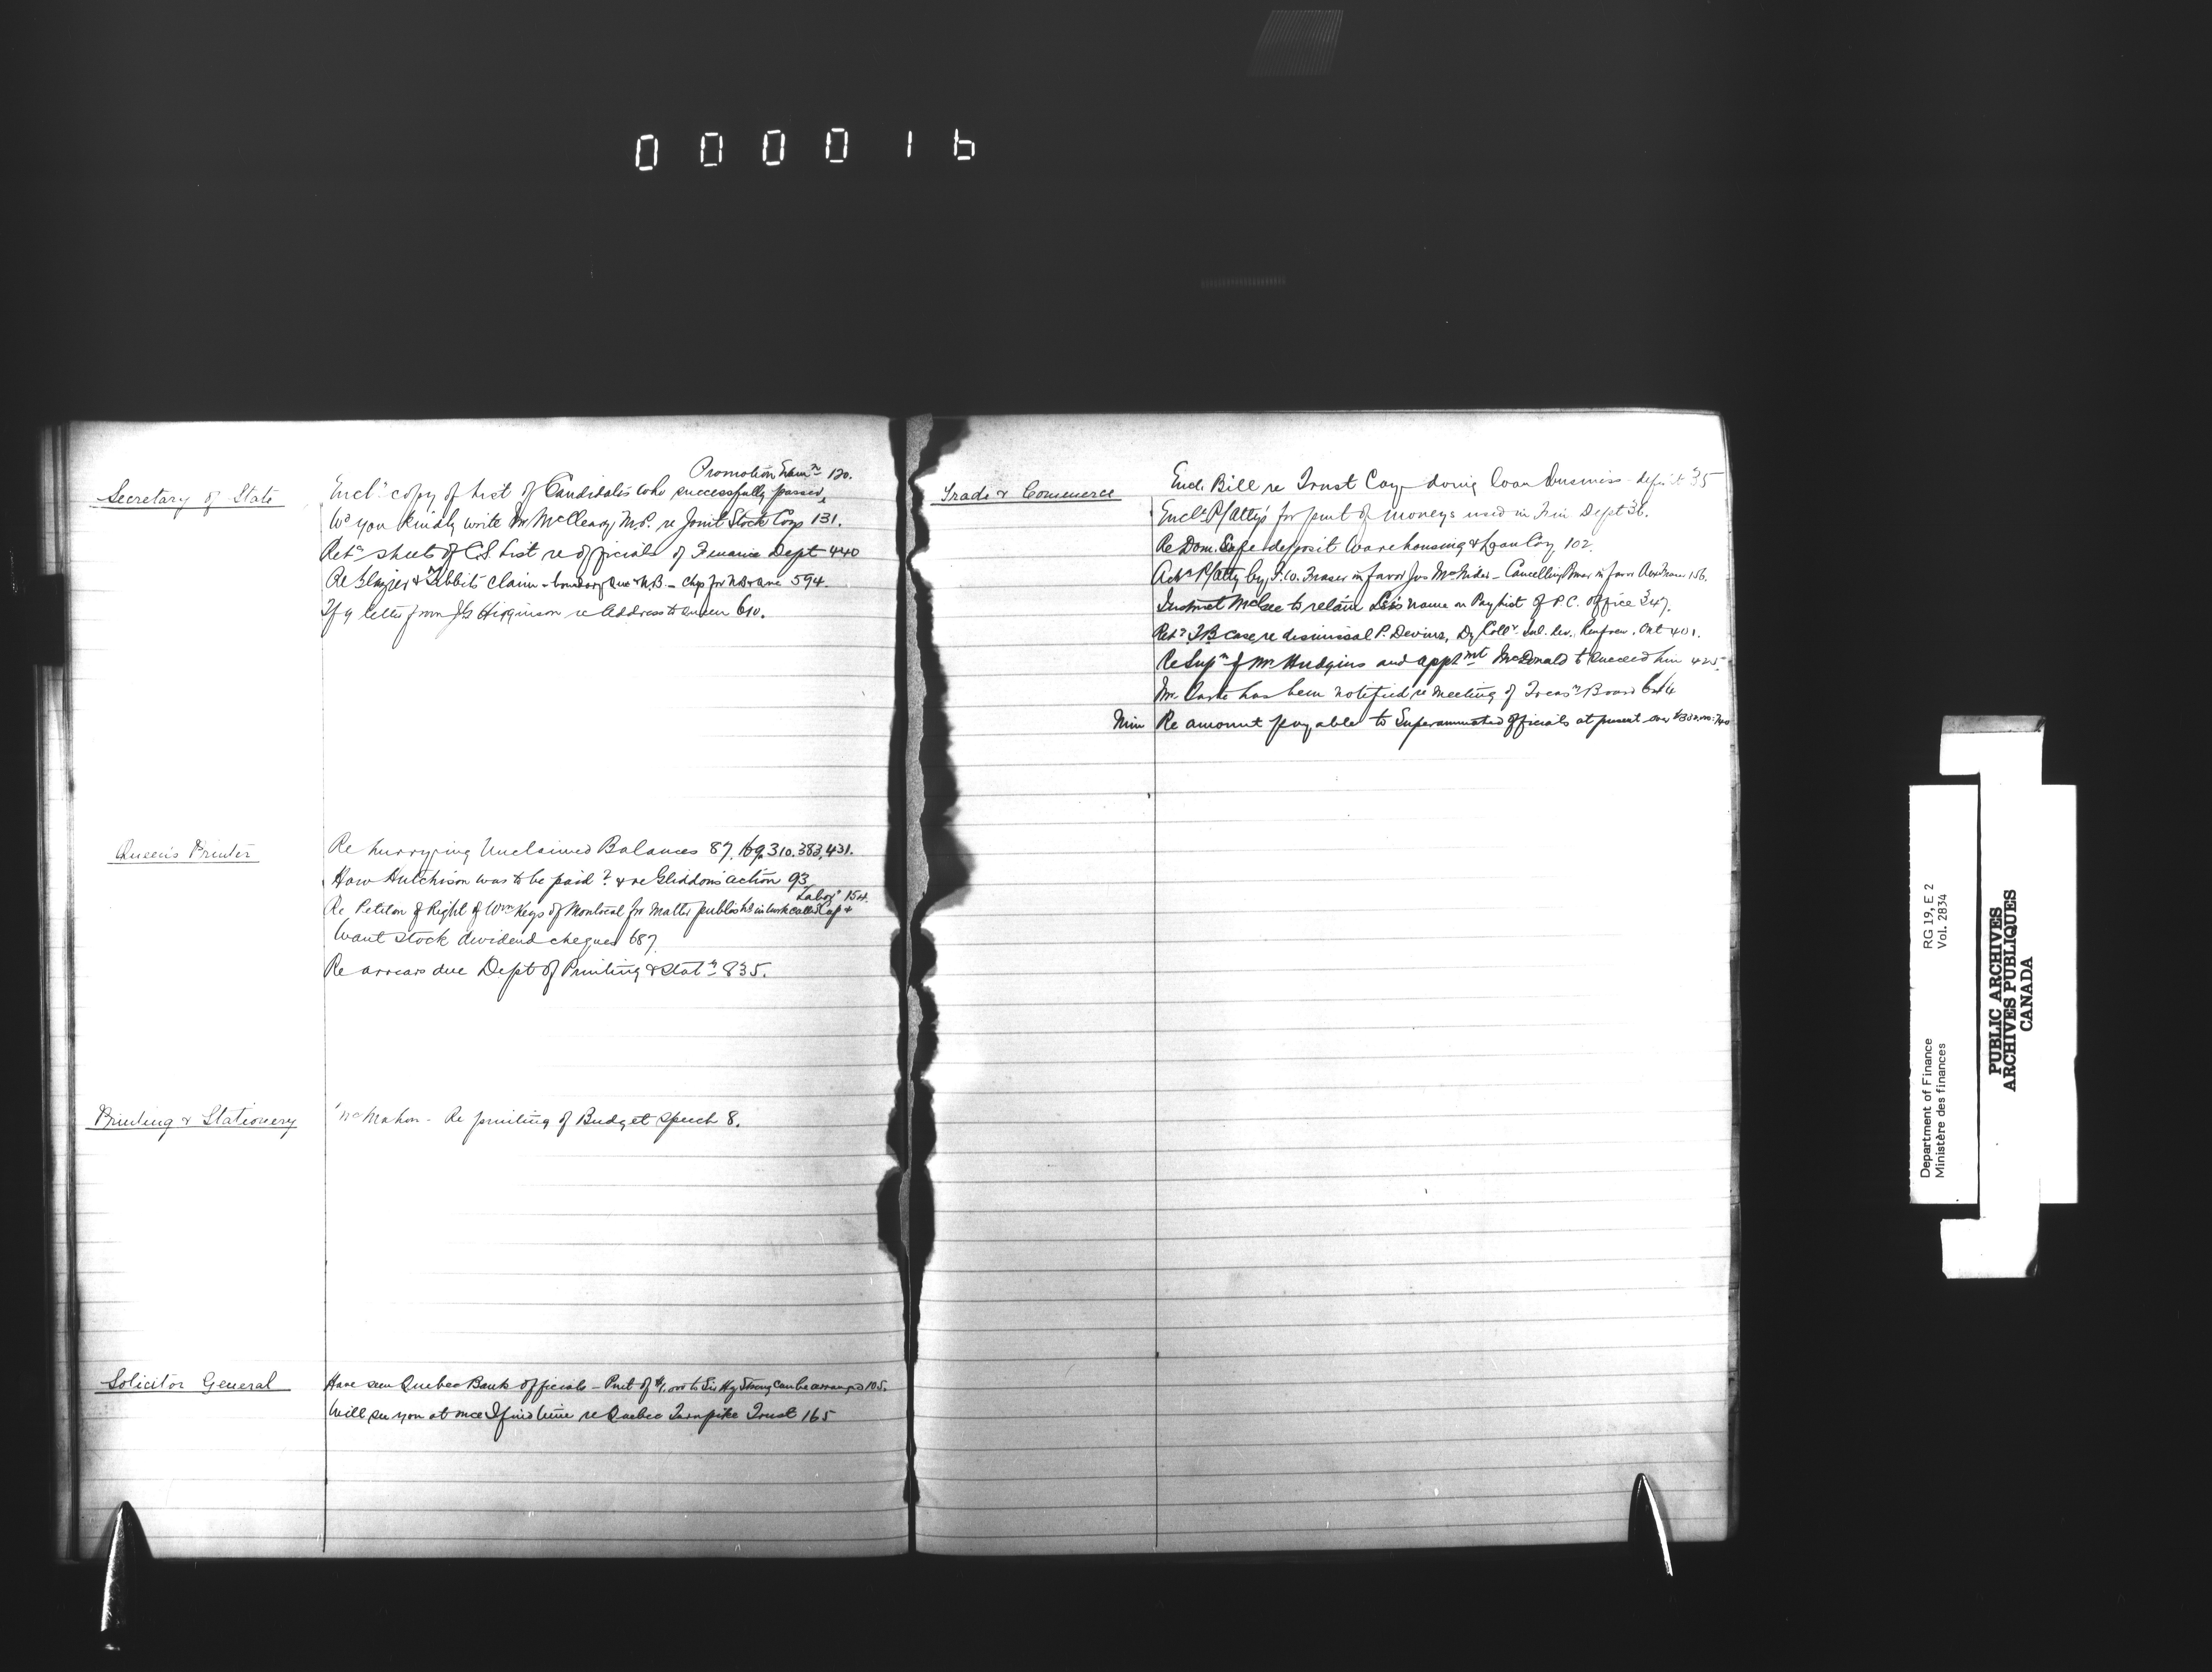 000016
Secretary of State
Promotion Exam.n 120.
Encl.g copy of List of Candidates who successfully passed
W.d you kindly write Mr McCleary, M.P. re Joint Stock Coys 131.
Ret.g sheets of C.S. List re officials of Finance Dept 440
Re Glazier & Tibbits claim - boundary Que & N.B. - 594.
letter from Higginson re Address to Queen 610.
Queen's Printer
Re hurrying Unclaimed Balances 87, 169, 310. 383, 431.
How Hutchison was to be paid? & re Gliddon's action 93
Labor 154.
Re Petition of Right of Wm Keys of Montreal for matter publish'd in work called Cap &
Want stock dividend cheques 687.
Re arrears due Dept of Printing & Stat.y 835.
Printing & Stationery
McMahon - Re printing of Budget Speech 8.
Solicitor General
Have seen Quebec Bank officials - Pmt of to Sir Hy Strong can be arranged 105.
Will see you at once I find time re Quebec Turnpike Trust 165
Trade & Commerce
Encl. Bill re Trust Coy doing loan business - deposit 35
Encl.g P/Atty's for pmt of moneys used in Fin Dept 36.
Re Dom. Safe deposit Warehousing & Loan Coy 102.
P/Atty by F.W. Fraser in favor Jos - Cancelling Power in favor 156.
Instruct McGee to retain name on Pay list of P.C. office 347.
Ret.g T.B. case re dismissal P. Devine, Dy Coll.r Inl. Rev. Renfrew, Ont 401.
Re Sup.n of Mr Hudgins and app.mt McDonald to succeed him 425
Mr. has been notified re meeting of Treas.y Board
Min Re amount payable to Superannuated officials at present over
RG 19, E 2
Vol. 2834
Department of Finance
Ministère des finances
PUBLIC ARCHIVES
ARCHIVES PUBLIQUES
CANADA